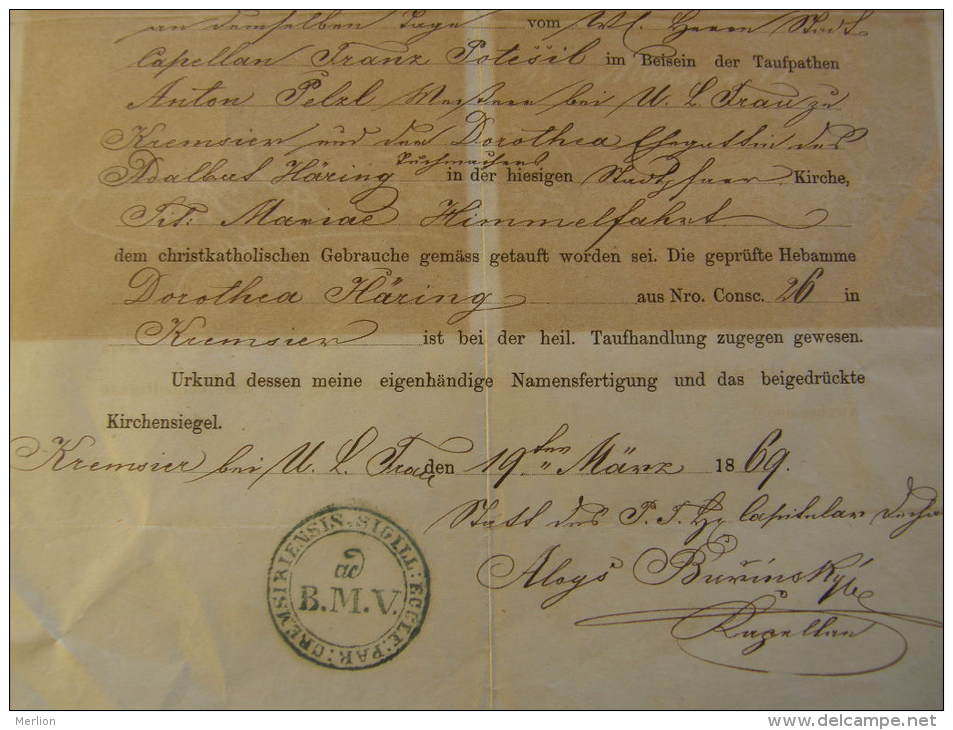 an demselben Tage vom Wl. Herrn Stadt
Capellan Franz Potěšil im Beisein der Taufpathen
Anton Pelzl bei U. L. Frau zu
Kremsier und der Dorothea Ehegattin des
Adalbert Häring Tuchmachers in der hiesigen Stadtpfarr Kirche,
Tit: Mariae Himmelfahrt
dem christkatholischen Gebrauche gemäss getauft worden sei. Die geprüfte Hebamme
Dorothea Häring aus Nro. Consc. 26 in
Kremsier ist bei der heil. Taufhandlung zugegen gewesen.
Urkund dessen meine eigenhändige Namensfertigung und das beigedrückte
Kirchensiegel.
Kremsier bei U. L. Frau den 19ten März 1869.
Statt des P. T. H Capitular Decha
Aloys
Kapellan
SIGILL: ECCLE: PAR: CREMSIRIENSIS.
ad
B.M.V.
Merlion
www.delcampe.net